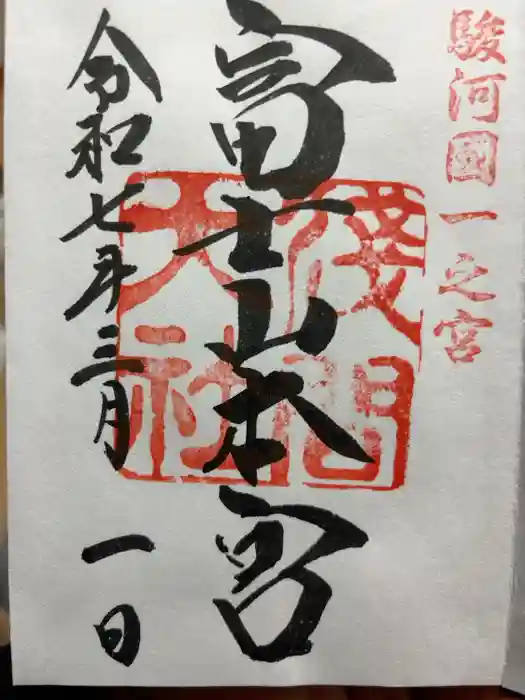 駿河國一之宮
富士山本宮
淺間大社
令和七年三月一日